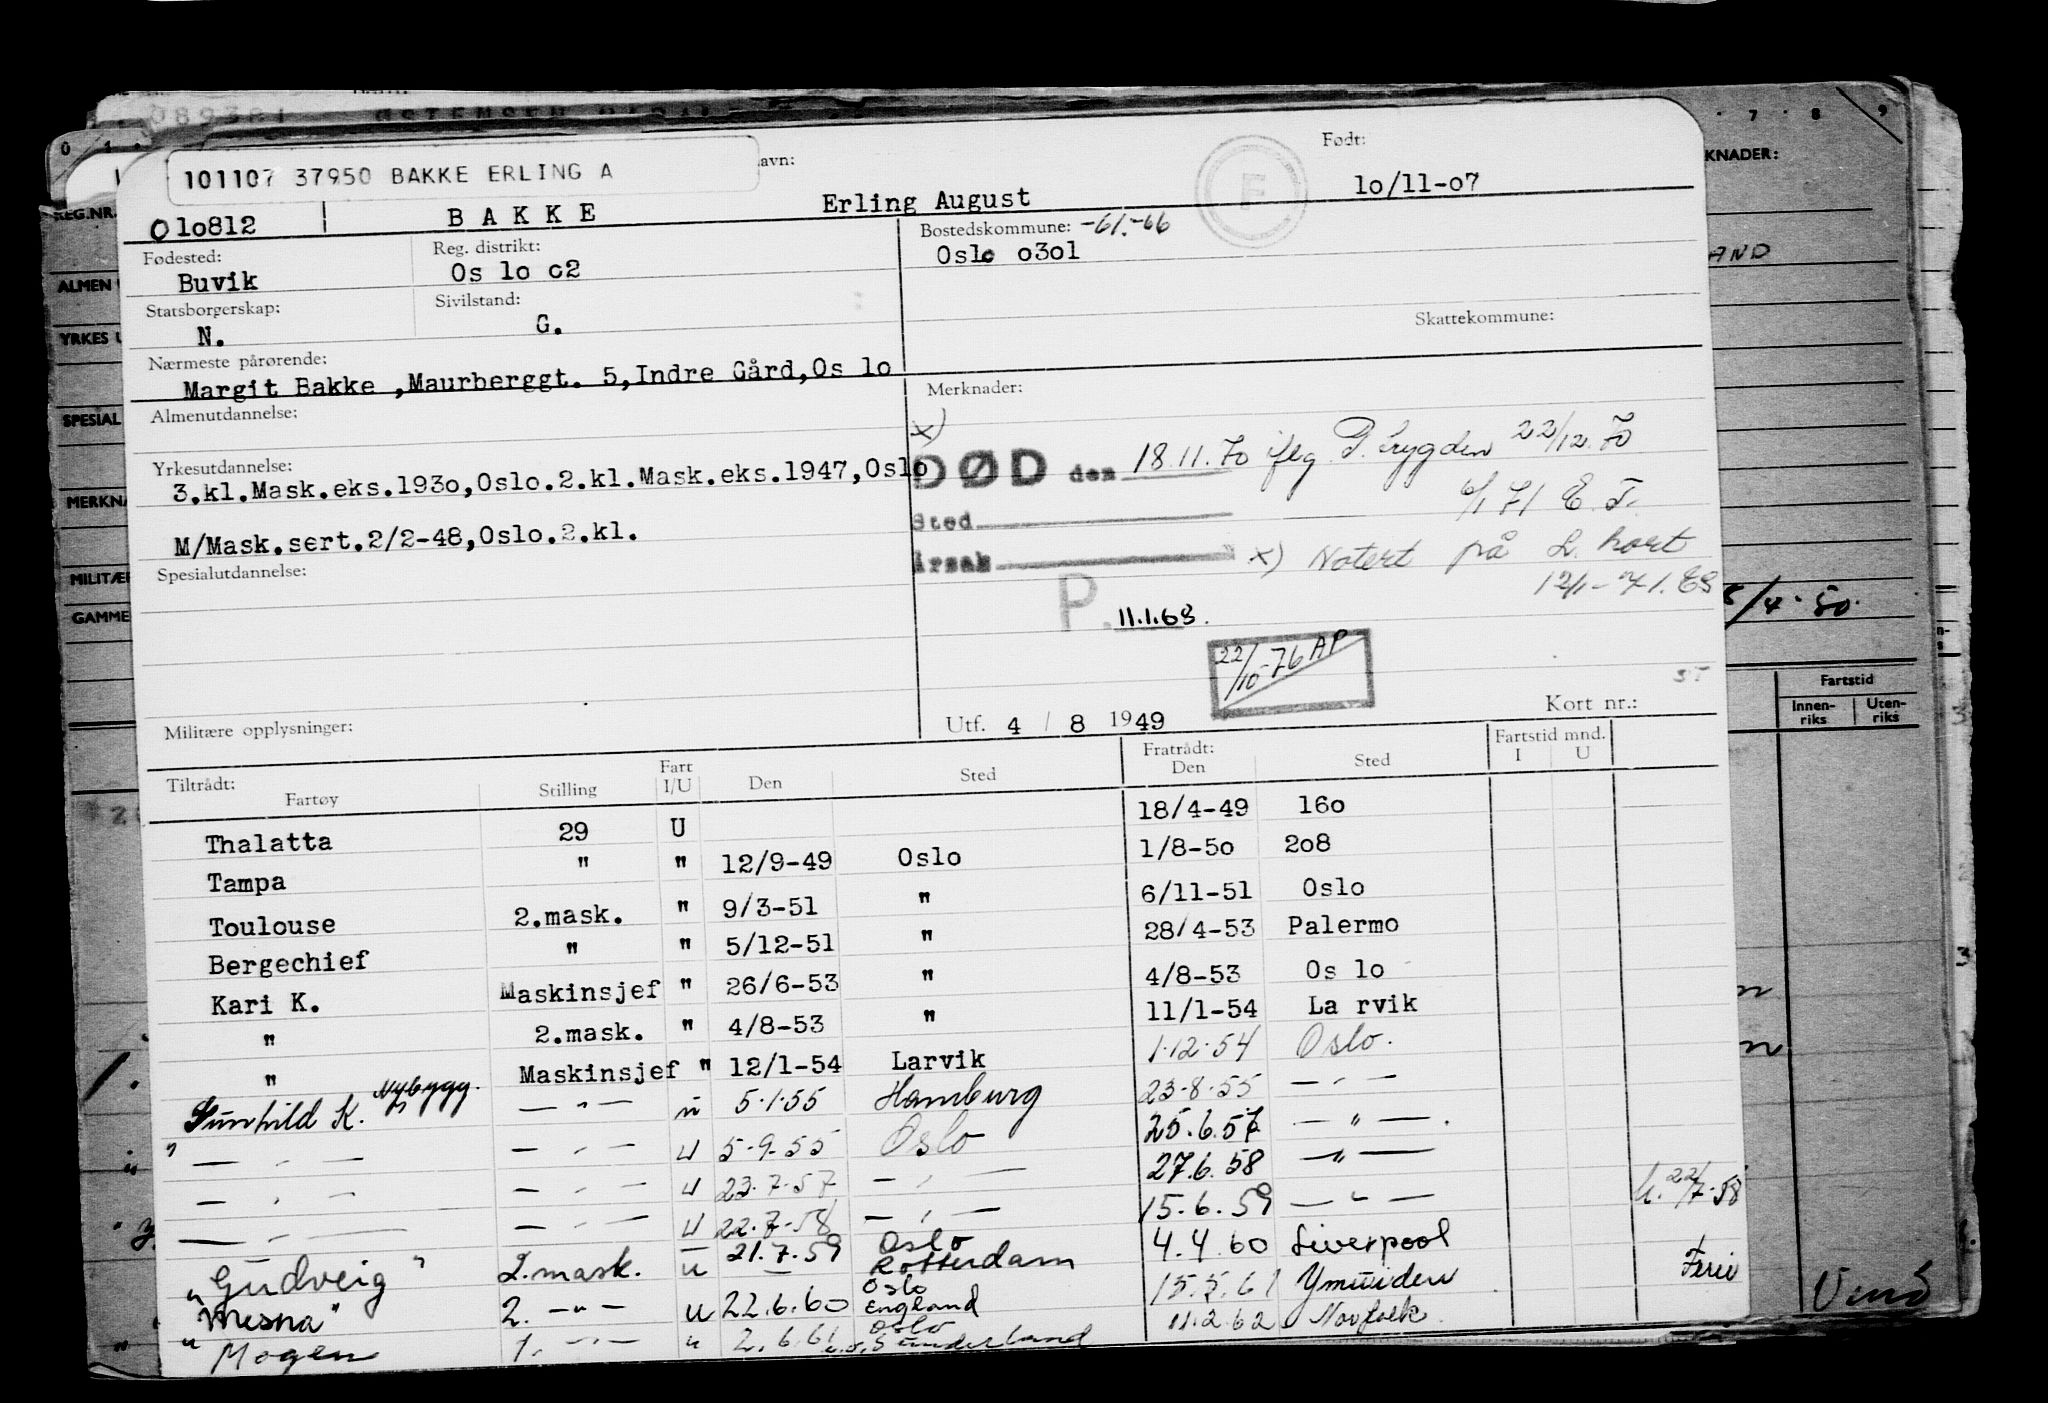 089381
101107 37950 BAKKE ERLING A
avn:
Født:
O 10812 BAKKE Erling August F 10/11-07
Fødested: Reg. distrikt: Bostedskommune: -61.-66
Buvik Os lo 02 Oslo 0301
Statsborgerskap: Sivilstand:
N. G. Skattekommune:
Nærmeste pårørende:
Margit Bakke ,Maurberggt. 5,Indre Gård,Os lo
Almenutdannelse: Merknader:
x)
Yrkesutdannelse:
3.kl.Mask.eks.1930,Oslo.2.kl.Mask.eks.1947,Oslo
M/Mask.sert.2/2-48,Oslo.2.kl.
DØD den 18.11.70 iflg P.trygden 22/12.70
6/1 71 E.T.
Sted
Årsak x) Notert på L. kort
12/1-71. ES
Spesialutdannelse:
P. 11.1.68.
22/10-76 AP
Militære opplysninger: Utf. 4 / 8 1949 Kort nr.:
Tiltrådt: Fratrådt: Fartstid mnd.
Fartøy Stilling Fart I/U Den Sted Den Sted I U
Thalatta 29 U 18/4-49 160
Tampa " " 12/9-49 Oslo 1/8-50 208
Toulouse 2.mask. " 9/3-51 " 6/11-51 Oslo
Bergechief " " 5/12-51 " 28/4-53 Palermo
Kari K. Maskinsjef " 26/6-53 " 4/8-53 Os lo
" 2.mask. " 4/8-53 " 11/1-54 La rvik
" Maskinsjef " 12/1-54 Larvik 1.12.54 Oslo.
Gunhild K. Nybygg. — " — u 5.1.55 Hamburg 23.8.55 — " —
" — " — — " — u 5.9.55 Oslo 25.6.57 — " — .
— " — — " — u 23.7.57 — " — 27.6.58 — " —
— " — — " — u 22.7.58 — " — 15.6.59 — " — 22/7.58
"Gudveig" 2.mask. u 21.7.59 Oslo Rotterdam 4.4.60 Liverpool
"Mesna" 2. — " — u 22.6.60 Oslo England 15.5.61 Ymuiden Ferie
"Mogen 1. — " — " 2.6.61 Oslo Sunderland 11.2.62 Norfolk.
REG.NR.
ALMEN
YRKES U
SPESIAL
MERKNA
MILITÆR
GAMME
7 8 9
KNADER:
AND
/4.50.
Fartstid
Innen-riks Uten-riks